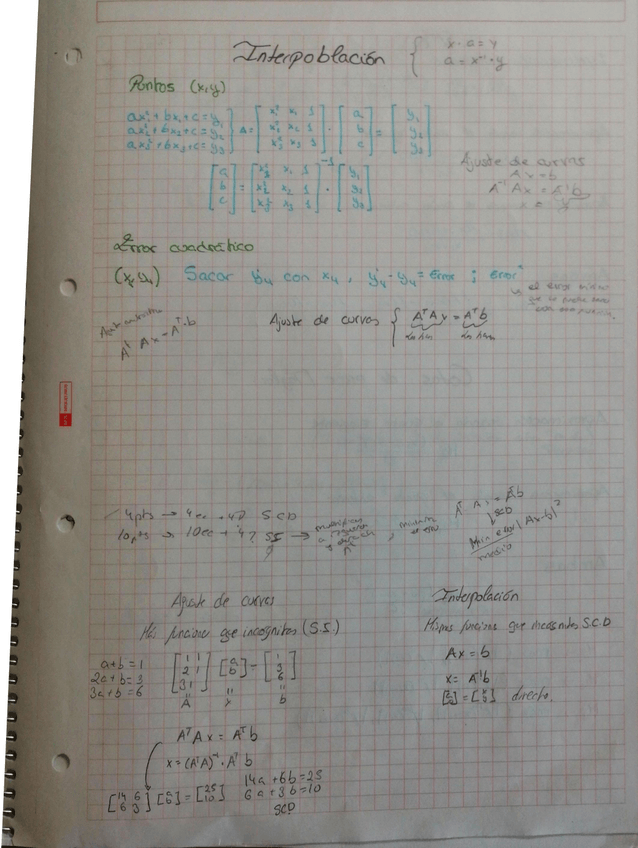 Interpoblación { x·a=y
a = x⁻¹·y
Puntos (x,y)
ax₁²+bx₁+c=y₁
ax₂²+bx₂+c=y₂ } A= [x₁² x₁ 1; x₂² x₂ 1; x₃² x₃ 1] · [a; b; c] = [y₁; y₂; y₃]
ax₃²+bx₃+c=y₃
[a; b; c] = [x₁² x₁ 1; x₂² x₂ 1; x₃² x₃ 1]⁻¹ · [y₁; y₂; y₃]
Ajuste de curvas
Ax=b
AᵀAx = Aᵀb
Error cuadrático
(x₄,y₄) Sacar y'₄ con x₄, y'₄-y₄ = Error ; Error²
↳ el error
Aᵀ Ax = Aᵀ·b
Ajuste de curvas { AᵀAx = Aᵀb
4pts → 4ec + 4? S.C.D
10pts → 10ec + 4? SI → multiplicas a izquierda y derecha Aᵀ, minimiza el error
Aᵀ A x = Aᵀb
↓ SCD
Min error |Ax-b|²
Ajuste de curvas
Más funciones que incognitas (S.I.)
a+b=1
2a+b=3
3a+b=6
[1 1; 2 1; 3 1] [a; b] = [1; 3; 6]
" " "
A x b
AᵀAx = Aᵀb
x=(AᵀA)⁻¹·Aᵀb
[14 6; 6 3] [a; b] = [25; 10] 14a+6b=25
6a+3b=10
SCD
Interpolación
Mismas funciones que incognitas S.C.D
Ax=b
x= A⁻¹b
directo.